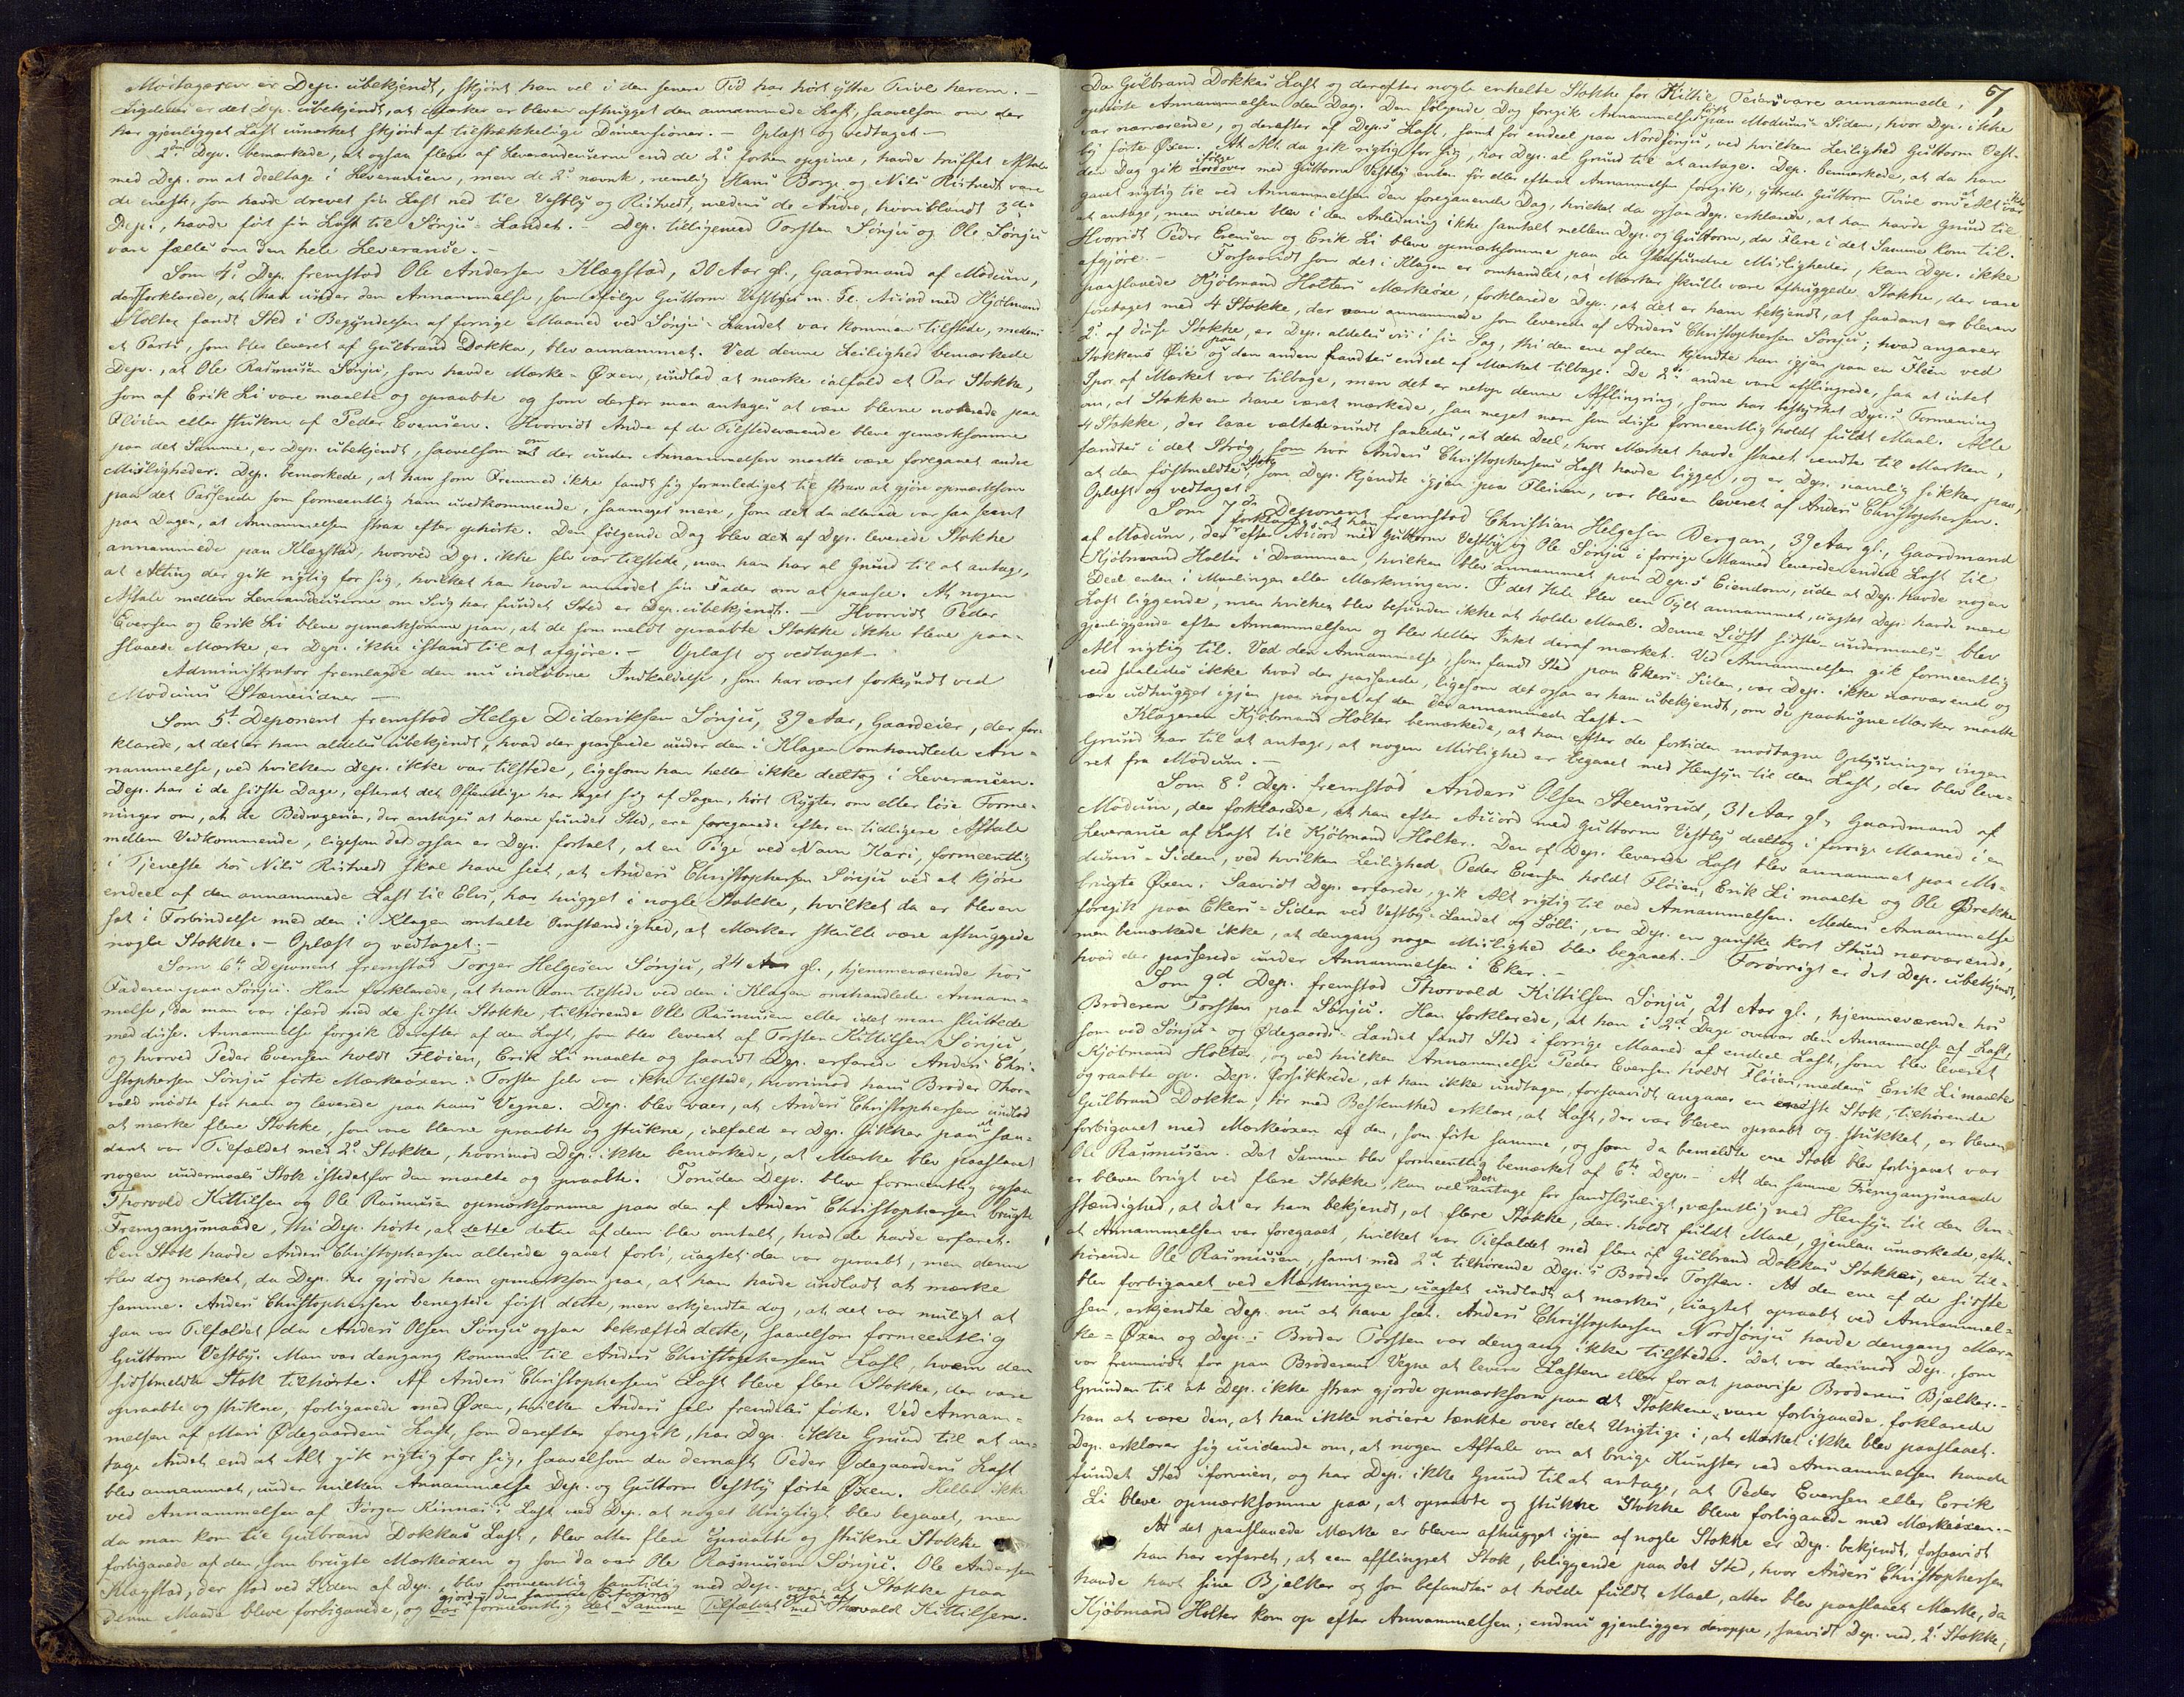 Modtageren er Dep. ubekjendt, skjønt han vel i den senere Tid har hørt yttre Tvivl herom. —
Ligeledes er det Dep. ubekjendt, at Mærker er bleven afhugget den annammede Last, saavelsom om der
har gjenligget Last umærket skjønt af tilstrækkelige Dimensioner. — Oplæst og vedtaget —
2det Dep. bemærkede, at ogsaa flere af Leverandeurerne end de 2de forhen opgivne, havde truffet Aftale
med Dep. om at deeltage i Leverancen, men de 2de nævnte, nemlig Hans Borge og Nils Ristvedt vare
de eneste, som havde drevet sin Last ned til Vestby og Ristvedt, medens de Andre, hvoriblandt 3die
Dep., havde ført sin Last til Sønju-Landet. — Dep. tilligemed Torsten Sønju og Ole Sønju
vare fælles om den hele Leverance. —
Som 4de Dep. fremstod Ole Andersen Klægstad, 30 Aar gl., Gaardmand af Modum,
der forklarede, at han under den Annammelse, som ifølge Guttorm Vestbys m. Fl. Accord med Kjøbmand
Holter fandt Sted i Begyndelsen af forrige Maaned ved Sønju-Landet var kommen tilstede, medens
et Parti, som blev leveret af Gulbrand Dokka, blev annammet. Ved denne Leilighed bemærkede
Dep., at Ole Rasmusen Sønju, som havde Mærke-Øxen, undlod at mærke ialfald et Par Stokke,
som af Erik Li vare maalte og opraabte og som derfor maa antages at være blevne noterede paa
Fløien eller stukne af Peder Evensen. Hvorvidt Andre af de Tilstedeværende bleve opmærksomme
paa det Samme, er Dep. ubekjendt, saavelsom om der under Annammelsen maatte være foregaaet andre
Misligheder. Dep. bemærkede, at han som Fremmed ikke fandt sig foranlediget til strax at gjøre opmærksom
paa det Passerede som formeentlig ham uvedkommende, saameget mere, som det da allerede var saa seent
paa Dagen, at Annammelsen strax efter ophørte. Den følgende Dag blev de af Dep. leverede Stokke
annammede paa Klægstad, hvorved Dep. ikke selv var tilstede, men han har al Grund til at antage,
at Alting der gik rigtig for sig, hvilket han havde anmodet sin Fader om at paasee. At nogen
Aftale mellem Leverandeurerne om Svig har fundet Sted er Dep. ubekjendt. — Hvorvidt Peder
Evensen og Erik Li bleve opmærksomme paa, at de som meldt opraabte Stokke ikke bleve paa-
slaaede Mærke, er Dep. ikke istand til at afgjøre. — Oplæst og vedtaget —
Administrator fremlagde den nu indløbne Indkaldelse, som har været forkyndt ved
Modums Stævnevidner —
Som 5te Deponent fremstod Helge Dideriksen Sønju, 39 Aar, Gaardeier, der for-
klarede, at det er ham aldeles ubekjendt, hvad der passerede under den i Klagen omhandlede An-
nammelse, ved hvilken Dep. ikke var tilstede, ligesom han heller ikke deeltog i Leverancen.
Dep. har i de sidste Dage, efterat det Offentlige har taget sig af Sagen, hørt Rygter om eller løse Forme-
ninger om, at de Bedragerier, der antages at have fundet Sted, ere foregaaede efter en tidligere Aftale
mellem Vedkommende, ligesom det ogsaa er Dep. fortalt, at en Pige ved Navn Kari, formeentlig
i Tjeneste hos Nils Ristvedt skal have seet, at Anders Christophersen Sønju ved at kjøre
endeel af den annammede Last til Elv, har hugget i nogle Stokke, hvilket da er bleven
sat i Forbindelse med den i Klagen omtalte Omstændighed, at Mærker skulle være afhuggede
nogle Stokke. — Oplæst og vedtaget. —
Som 6te Deponent fremstod Torger Helgesen Sønju, 24 Aar gl., hjemmeværende hos
Faderen paa Sønju. Han forklarede, at han kom tilstede ved den i Klagen omhandlede Annam-
melse, da man var ifærd med de sidste Stokke, tilhørende Ole Rasmusen eller idet man sluttede
med disse. Annammelse foregik derefter af den Last, som blev leveret af Torsten Kittilsen Sønju,
og hvorved Peder Evensen holdt Fløien, Erik Li maalte og saavidt Dep. erfarede Anders Chri-
stophersen Sønju førte Mærkeøxen. Torsten selv var ikke tilstede, hvorimod hans Broder Thor-
vald mødte for ham og leverede paa hans Vegne. Dep. blev vaer, at Anders Christophersen undlod
at mærke flere Stokke, som vare blevne opraabte og stukne, ialfald er Dep. sikker paa at saa-
dant var Tilfældet med 2de Stokke, hvorimod Dep. ikke bemærkede, at Mærke blev paaslaaet
nogen undermaals Stok istedetfor den maalte og opraabte. Foruden Dep. bleve formeentlig ogsaa
Thorvald Kittilsen og Ole Rasmusen opmærksomme paa den af Anders Christophersen brugte
Fremgangsmaade, thi Dep. hørte, at dette af dem blev omtalt, hvad de havde erfaret.
Een Stok havde Anders Christophersen allerede gaaet forbi, uagtet den var opraabt, men denne
blev dog mærket, da Dep. gjorde ham opmærksom paa, at han havde undladt at mærke
samme. Anders Christophersen benegtede først dette, men erkjendte dog, at det var muligt at
saa var Tilfældet, da Anders Olsen Sønju ogsaa bekræftede dette, saavelsom formeentlig
Guttorm Vestby. Man var dengang kommen til Anders Christophersens Last, hvem den
sidstmeldte Stok tilhørte. Af Anders Christophersens Last bleve flere Stokke, der vare
opraabte og stukne, forbigaaede med Øxen, hvilken Anders selv fremdeles førte. Ved Annam-
melsen af Mari Ødegaardens Last, som derefter foregik, har Dep. ikke Grund til at an-
tage Andet end at Alt gik rigtig for sig, saavelsom da dernæst Peder Ødegaardens Last
blev annammet, under hvilken Annammelse Dep. og Guttorm Vestby førte Øxen. Heller ikke
ved Annammelsen af Jørgen Kinnas's Last ved Dep. at noget Urigtigt blev begaaet, men
da man kom til Gulbrand Dokkas Last, blev atter flere opraabte og stukne Stokke
forbigaaede af den, som brugte Mærkeøxen og som da var Ole Rasmusen Sønju. Ole Andersen
Klægstad, der stod ved Siden af Dep., blev formeentlig samtidig med Dep. vaer, at Stokke paa
denne Maade bleve forbigaaede, og gjordes den samme Erfaring formeentlig ogsaa af Thorvald Kittilsen.
67,
Da Gulbrand Dokkas Last og derefter nogle enkelte Stokke for Kittil Teiens vare annammede,
ophørte Annammelsen den Dag. Den følgende Dag foregik Annammelsen først paa Modums-Siden, hvor Dep. ikke
var nærværende, og derefter af Dep.s Last, samt for endeel paa Nordsønju, ved hvilken Leilighed Guttorm Vest-
by førte Øxen. At Alt da gik rigtig for sig, har Dep. al Grund til at antage. Dep. bemærkede, at da han
den Dag gik ifølge med Guttorm Vestby enten før eller efterat Annammelsen foregik, yttrede Guttorm Tvivl om at Alt ikke var
gaaet rigtig til ved Annammelsen den foregaaende Dag, hvilket da ogsaa Dep. erklærede, at han havde Grund til
at antage, men videre blev i den Anledning ikke samtalt mellem Dep. og Guttorm, da Flere i det Samme kom til.
Hvorvidt Peder Evensen og Erik Li bleve opmærksomme paa de stedfundne Misligheder, kan Dep. ikke
afgjøre. — Forsaavidt som det i Klagen er omhandlet, at Mærker skulle være afhuggede Stokke, der vare
paaslaaede Kjøbmand Holters Mærkeøxe, forklarede Dep., at det er ham bekjendt, at saadant er bleven
foretaget med 4 Stokke, der vare annammede som leverede af Anders Christophersen Sønju; hvad angaaer
2de af disse Stokke, er Dep. aldeles vis i sin Sag, thi den ene af dem kjendte han igjen paa en Fleen ved
Stokkens Øie og paa den anden fandtes endeel af Mærket tilbage. De 2de andre vare afflingrede, saa at intet
Spor af Mærket var tilbage, men det er netop denne Afflingring, som har bestyrket Dep.s Formening
om, at Stokkene have været mærkede, saa meget mere som disse formeentlig holdt fuldt Maal. Alle
4 Stokke, der laae væltede rundt saaledes, at den Deel, hvor Mærket havde staaet vendte til Marken,
fandtes i det Strøg, som hvor Anders Christophersens Last havde ligget, og er Dep. navnlig sikker paa,
at den førstmeldte Stok, som Dep. kjendte igjen paa Fleinen, var bleven leveret af Anders Christophersen.
Oplæst og vedtaget. —
Som 7de Deponent fremstod Christian Helgesen Bergan, 39 Aar gl., Gaardmand
af Modum, der forklarede, at han efter Accord med Guttorm Vestby og Ole Sønju i forrige Maaned leverede endeel Last til
Kjøbmand Holter i Drammen, hvilken blev annammet paa Dep.s Eiendom, uden at Dep. havde nogen
Deel enten i Maalingen eller Mærkningen. I det Hele blev een Tylt annammet, uagtet Dep. havde mere
Last liggende, men hvilken blev befunden ikke at holde Maal. Denne sidste undermaals blev
gjenliggende efter Annammelsen og blev heller Intet deraf mærket. Ved Annammelsen gik formeentlig
Alt rigtig til. Ved den Annammelse, som fandt Sted paa Ekers-Siden, var Dep. ikke nærværende og
ved saaledes ikke hvad der passerede, ligesom det ogsaa er ham ubekjendt, om de paahugne Mærker maatte
være udhugget igjen paa noget af den der annammede Last. —
Klageren Kjøbmand Holter bemærkede, at han efter de fortiden modtagne Oplysninger ingen
Grund har til at antage, at nogen Mislighed er begaaet med Hensyn til den Last, der blev leve-
ret fra Modum. —
Som 8de Dep. fremstod Anders Olsen Steensrud, 31 Aar gl., Gaardmand af
Modum, der forklarede, at han efter Accord med Guttorm Vestby deeltog i forrige Maaned i en
Leverance af Last til Kjøbmand Holter. Den af Dep. leverede Last blev annammet paa Mo-
dums-Siden, ved hvilken Leilighed Peder Evensen holdt Fløien, Erik Li maalte og Ole Brekke
brugte Øxen. Saavidt Dep. erfarede, gik Alt rigtig til ved Annammelsen. Medens Annammelse
foregik paa Ekers-Siden ved Vestby-Landet og Sølli, var Dep. en ganske kort Stund nærværende,
men bemærkede ikke, at dengang nogen Mislighed blev begaaet. — Forøvrigt er det Dep. ubekjendt,
hvad der passerede under Annammelsen i Eker. —
Som 9de Dep. fremstod Thorvald Kittilsen Sønju, 21 Aar gl., hjemmeværende hos
Broderen Torsten paa Sønju. Han forklarede, at han i 2de Dage overvar den Annammelse af Last,
som ved Sønju- og Ødegaards-Landet fandt Sted i forrige Maaned af endeel Last, som blev leveret
Kjøbmand Holter, og ved hvilken Annammelse Peder Evensen holdt Fløien, medens Erik Li maalte
og raabte op. Dep. forsikkrede, at han ikke undtagen, forsaavidt angaaer en eneste Stok, tilhørende
Gulbrand Dokka, tør med Bestemthed erklære, at Last, der var bleven opraabt og stukket, er bleven
forbigaaet med Mærkeøxen af den, som førte samme, og som da bemeldte ene Stok blev forbigaaet var
Ole Rasmusen. Det Samme blev formeentlig bemærket af 6te Dep. — At den samme Fremgangsmaade
er bleven brugt ved flere Stokke, kan vel Dep. antage for sandsynligt, væsentlig ved Hensyn til den Om-
stændighed, at det er ham bekjendt, at flere Stokke, der holdt fuldt Maal, gjenlaa umærkede, efter-
at Annammelsen var foregaaet, hvilket var Tilfældet med flere af Gulbrand Dokkas Stokke, een til-
hørende Ole Rasmusen, samt med 2de tilhørende Dep.s Broder Torsten. At den ene af de sidste
blev forbigaaet ved Mærkningen, uagtet undladt at mærkes, uagtet opraabt ved Annammel-
sen, erkjendte Dep. nu at have seet. Anders Christophersen Nordsønju havde dengang Mær-
ke-Øxen og Dep.s Broder Torsten var dengang ikke tilstede. Det var derimod Dep., som
var fremmødt for paa Broderens Vegne at levere Lasten eller for at paavise Broderens Bjelker. —
Grunden til at Dep. ikke strax gjorde opmærksom paa at Stokkene vare forbigaaede, forklarede
han at være den, at han ikke nøiere tænkte over det Urigtige i, at Mærket ikke blev paaslaaet.
Dep. erklærer sig uvidende om, at nogen Aftale om at bruge Kunster ved Annammelsen havde
fundet Sted iforveien, og har Dep. ikke Grund til at antage, at Peder Evensen eller Erik
Li bleve opmærksomme paa, at opraabte og stukne Stokke bleve forbigaaede med Mærkeøxen. —
At det paaslaaede Mærke er bleven afhugget igjen af nogle Stokke er Dep. bekjendt, forsaavidt
han har erfaret, at een afflingret Stok, beliggende paa det Sted, hvor Anders Christophersen
havde havt sine Bjelker og som befandtes at holde fuldt Maal, atter blev paaslaaet Mærke, da
Kjøbmand Holter kom op efter Annammelsen; endnu gjenligger deroppe, saavidt Dep. ved, 2de Stokke,